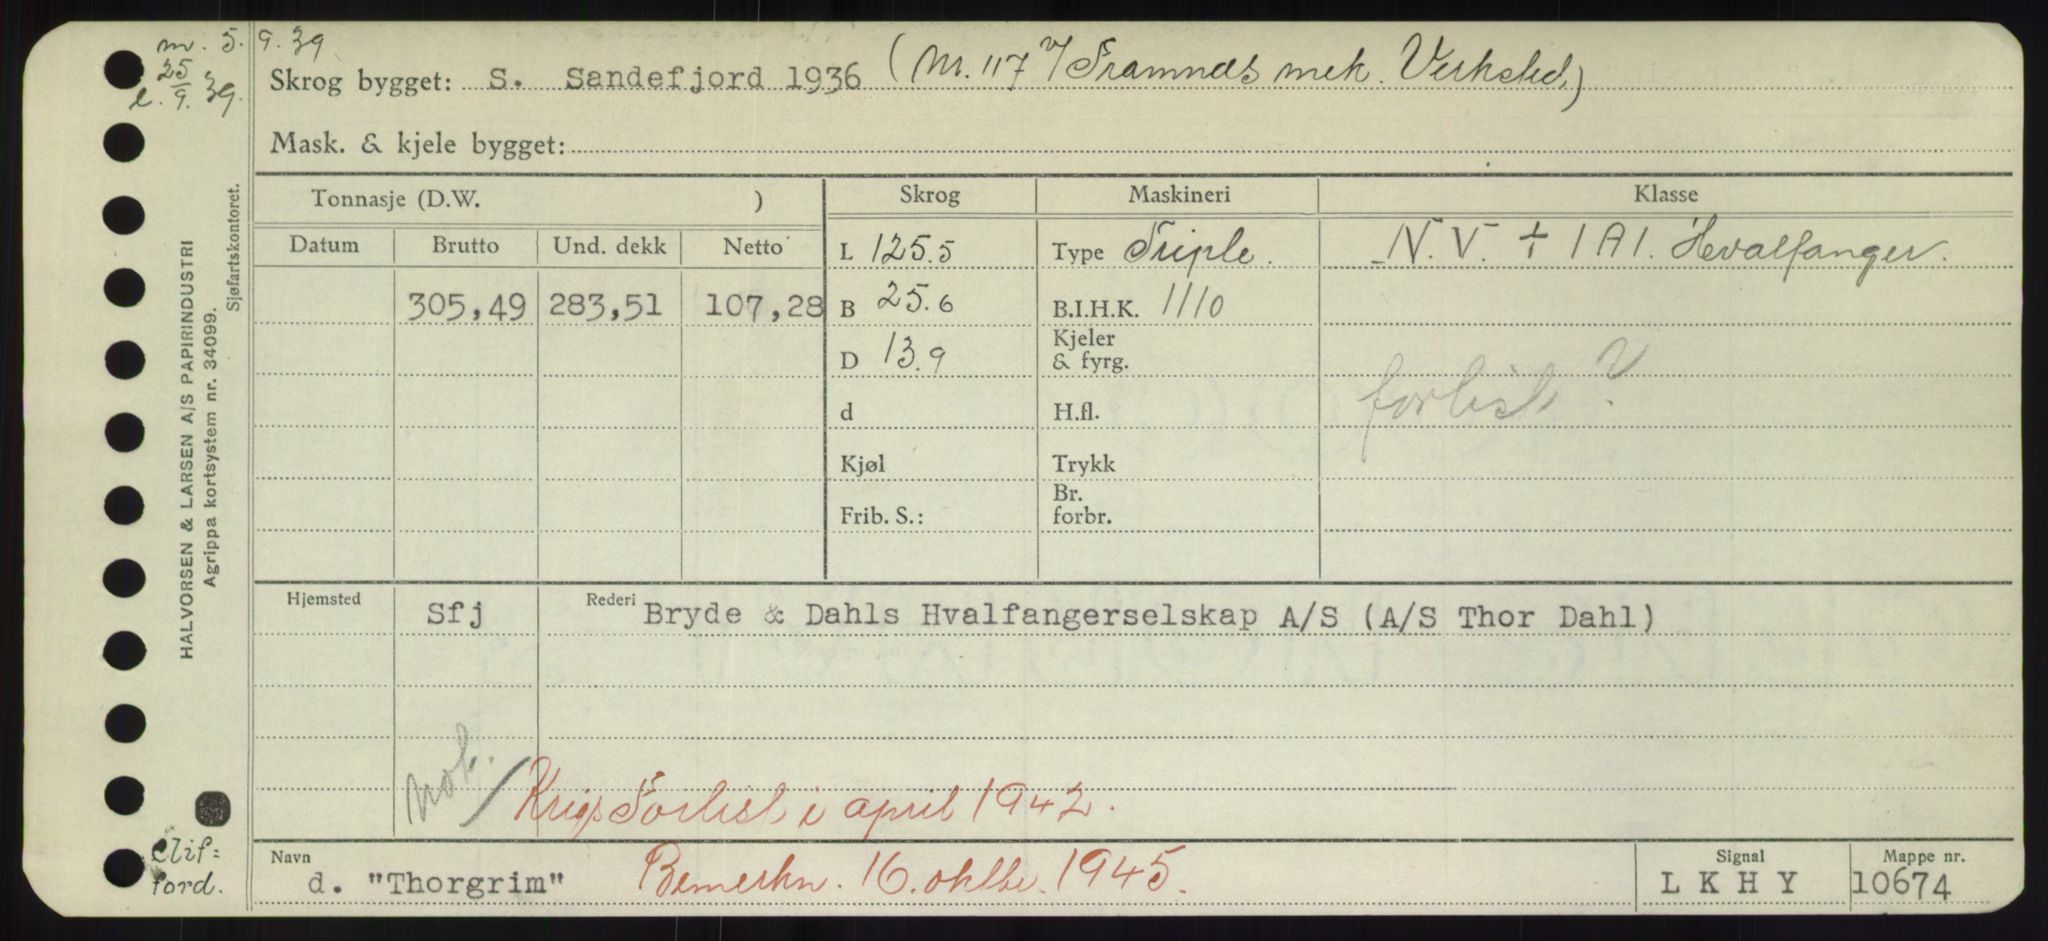 m. 5. 9. 39
e. 25/9. 39.
Skrog bygget: S. Sandefjord 1936 (Nr. 117 v/ Framnæs mek. Verksted)
Mask. & kjele bygget:
Tonnasje (D.W. )
Skrog Maskineri Klasse
Datum Brutto Und. dekk Netto
L 125.5 Type Triple. N. V. + 1 A 1. Hvalfanger.
305,49 283,51 107,28 B 25.6 B.I.H.K. 1110
D 13.9 Kjeler
& fyrg.
forlist?
d H.fl.
Kjøl Trykk
Frib. S.: Br.
forbr.
Hjemsted Sfj Rederi Bryde & Dahls Hvalfangerselskap A/S (A/S Thor Dahl)
not. / Krigsforlist i april 1942.
Navn d. "Thorgrim" Bemerkn. 16. oktbr. 1945.
Signal L K H Y
Mappe nr. 10674
HALVORSEN & LARSEN A/S PAPIRINDUSTRI
Agrippa kortsystem nr. 34099.
Sjøfartskontoret.
Clif=
ford.